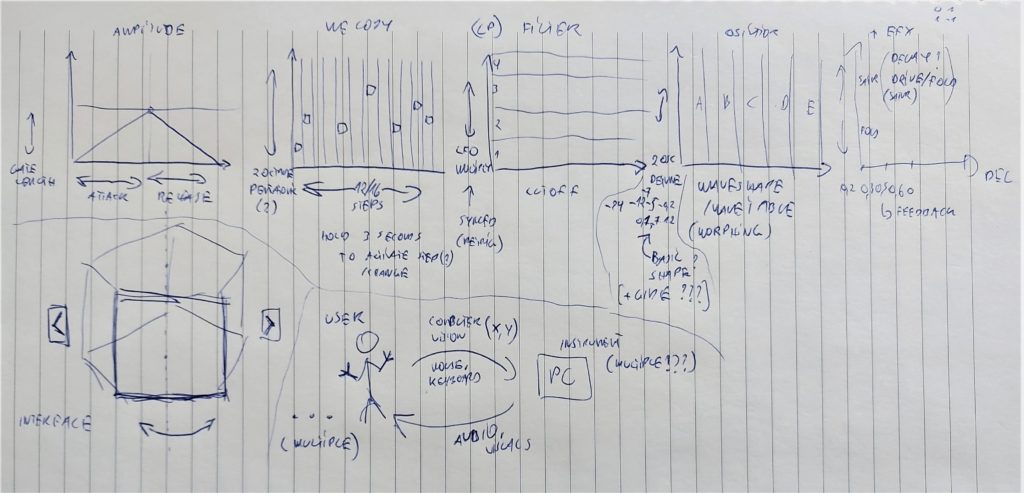 AMPLITUDE
GATE
LENGTH
ATTACK
RELEASE
MELODY
2 OCTAVE
PENTATONIC
(?)
12/16
STEPS
HOLD 3 SECONDS
TO ACTIVATE STEP(?)
/CHANGE
(LP) FILTER
4
3
2
1
LFO
MULTIPLY
SYNCED
(METRIC)
CUTOFF
20K
OSCILLATOR
A B C D E
DETUNE
-7
-24 -12 -5 -0,2
0,2, 7 12
BASIC
SHAPE?
[+ GLIDE ???]
WAVESHAPE
/WAVETABLE
(MORPHING)
0 1
1 -1
+ EFX
(DELAY?
DRIVE/FOLD
(SATUR)
SATUR
FOLD
DEL
FEEDBACK
INTERFACE
<
>
USER
COMPUTER
VISION (X,Y)
MOUSE,
KEYBOARD
INSTRUMENT
(MULTIPLE???)
PC
AUDIO
VISUALS
...
(MULTIPLE)